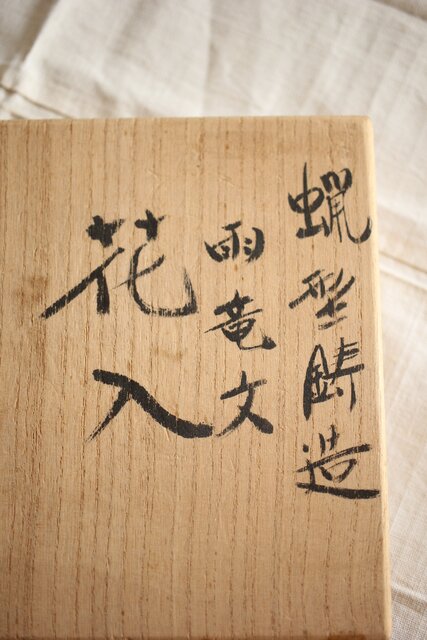 蝋型鋳造
雨竜文
花入